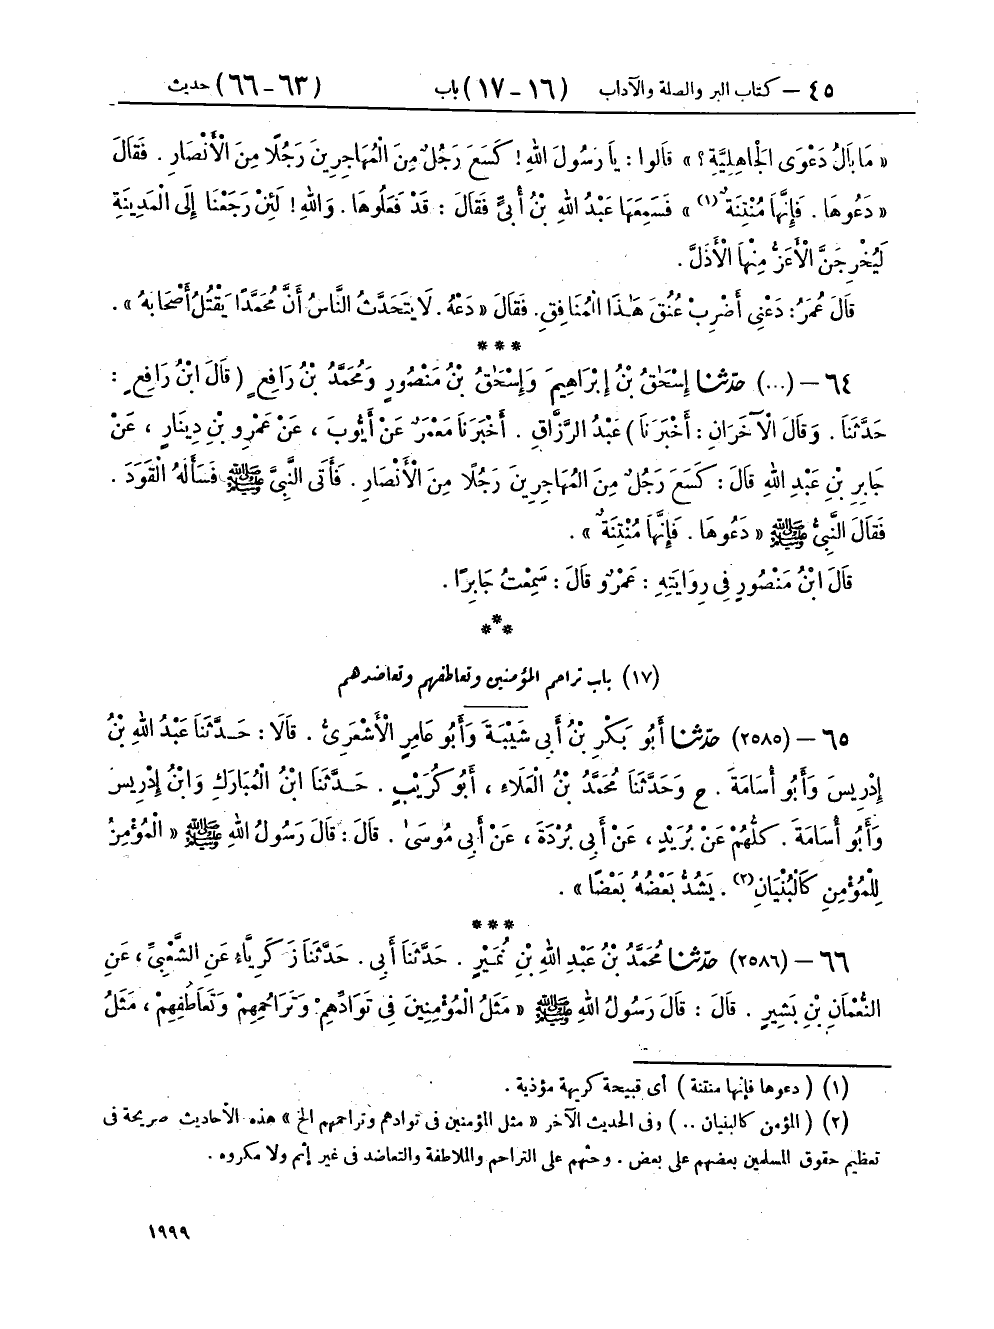 ٤٥ – كتاب البر والصلة والآداب (١٦-١٧) باب (٦٣-٦٦) حديث
« مَا بَالُ دَعْوَى الْجَاهِلِيَّةِ ؟ » قَالُوا : يَا رَسُولَ اللهِ ! كَسَعَ رَجُلٌ مِنَ الْمُهَاجِرِينَ رَجُلًا مِنَ الْأَنْصَارِ . فَقَالَ
« دَعُوهَا . فَإِنَّهَا مُنْتِنَةٌ (١) » فَسَمِعَهَا عَبْدُ اللهِ بْنُ أُبَيٍّ فَقَالَ : قَدْ فَعَلُوهَا . وَاللهِ ! لَئِنْ رَجَعْنَا إِلَى الْمَدِينَةِ
لَيُخْرِجَنَّ الْأَعَزُّ مِنْهَا الْأَذَلَّ .
قَالَ عُمَرُ : دَعْنِي أَضْرِبْ عُنُقَ هَٰذَا الْمُنَافِقِ . فَقَالَ « دَعْهُ . لَا يَتَحَدَّثُ النَّاسُ أَنَّ مُحَمَّدًا يَقْتُلُ أَصْحَابَهُ » .
***
٦٤ – (...) حَدَّثَنَا إِسْحَٰقُ بْنُ إِبْرَاهِيمَ وَإِسْحَٰقُ بْنُ مَنْصُورٍ وَمُحَمَّدُ بْنُ رَافِعٍ ( قَالَ ابْنُ رَافِعٍ :
حَدَّثَنَا . وَقَالَ الْآخَرَانِ : أَخْبَرَنَا ) عَبْدُ الرَّزَّاقِ . أَخْبَرَنَا مَعْمَرٌ عَنْ أَيُّوبَ ، عَنْ عَمْرِو بْنِ دِينَارٍ ، عَنْ
جَابِرِ بْنِ عَبْدِ اللهِ قَالَ : كَسَعَ رَجُلٌ مِنَ الْمُهَاجِرِينَ رَجُلًا مِنَ الْأَنْصَارِ . فَأَتَى النَّبِيَّ ﷺ فَسَأَلَهُ الْقَوَدَ .
فَقَالَ النَّبِيُّ ﷺ « دَعُوهَا . فَإِنَّهَا مُنْتِنَةٌ » .
قَالَ ابْنُ مَنْصُورٍ فِي رِوَايَتِهِ : عَمْرٌو قَالَ : سَمِعْتُ جَابِرًا .
***
(١٧) باب تراحم المؤمنين وتعاطفهم وتعاضدهم
٦٥ – (٢٥٨٥) حَدَّثَنَا أَبُو بَكْرِ بْنُ أَبِي شَيْبَةَ وَأَبُو عَامِرٍ الْأَشْعَرِيُّ . قَالَا : حَدَّثَنَا عَبْدُ اللهِ بْنُ
إِدْرِيسَ وَأَبُو أُسَامَةَ . ح وَحَدَّثَنَا مُحَمَّدُ بْنُ الْعَلَاءِ ، أَبُو كُرَيْبٍ . حَدَّثَنَا ابْنُ الْمُبَارَكِ وَابْنُ إِدْرِيسَ
وَأَبُو أُسَامَةَ . كُلُّهُمْ عَنْ بُرَيْدٍ ، عَنْ أَبِي بُرْدَةَ ، عَنْ أَبِي مُوسَىٰ . قَالَ : قَالَ رَسُولُ اللهِ ﷺ « الْمُؤْمِنُ
لِلْمُؤْمِنِ كَالْبُنْيَانِ (٢) . يَشُدُّ بَعْضُهُ بَعْضًا » .
***
٦٦ – (٢٥٨٦) حَدَّثَنَا مُحَمَّدُ بْنُ عَبْدِ اللهِ بْنِ نُمَيْرٍ . حَدَّثَنَا أَبِي . حَدَّثَنَا زَكَرِيَّاءُ عَنِ الشَّعْبِيِّ ، عَنِ
النُّعْمَانِ بْنِ بَشِيرٍ . قَالَ : قَالَ رَسُولُ اللهِ ﷺ « مَثَلُ الْمُؤْمِنِينَ فِي تَوَادِّهِمْ وَتَرَاحُمِهِمْ وَتَعَاطُفِهِمْ ، مَثَلُ
(١) ( دعوها فإنها منتنة ) أى قبيحة كريهة مؤذية .
(٢) ( المؤمن كالبنيان .. ) وفى الحديث الآخر « مثل المؤمنين فى توادهم وتراحمهم الخ » هذه الأحاديث صريحة فى
تعظيم حقوق المسلمين بعضهم على بعض . وحثهم على التراحم والملاطفة والتعاضد فى غير إثم ولا مكروه .
١٩٩٩